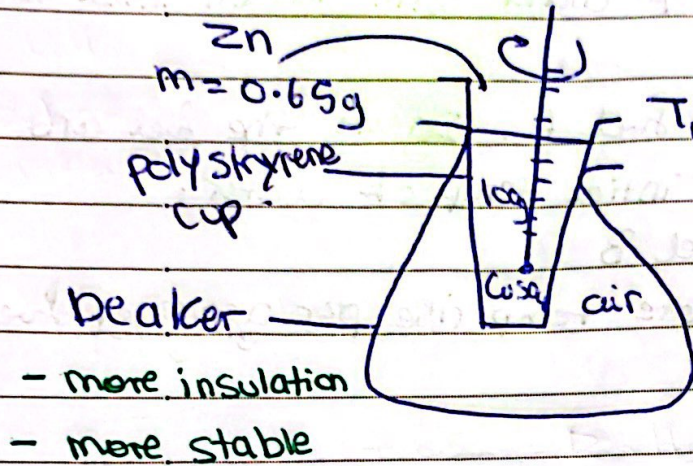 Zn
m = 0.65g
T
polystryrene
cup
100g
CuSO4
air
beaker
- more insulation
- more stable